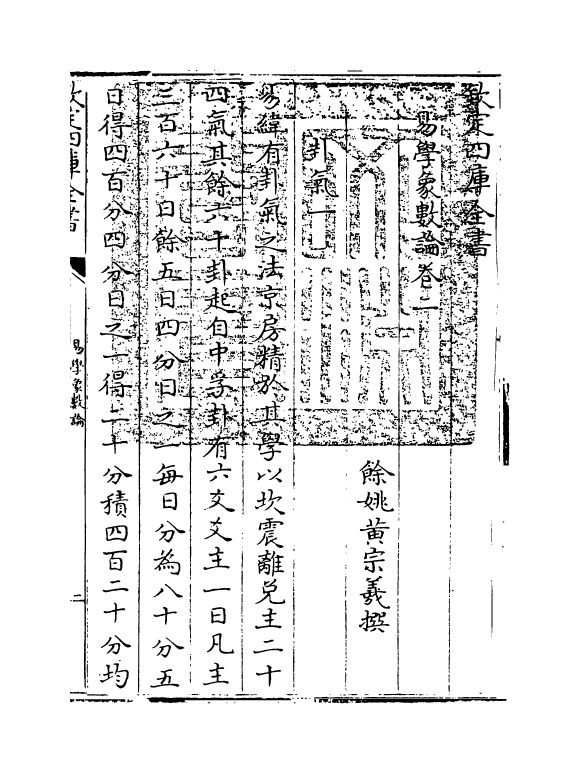 欽定四庫全書
易學象數論卷二
餘姚黃宗羲撰
卦氣一
易緯有卦氣之法京房精於其學以坎震離兌主二十
四氣其餘六十卦起自中孚卦有六爻爻主一日凡主
三百六十日餘五日四分日之一每日分為八十分五
日得四百分四分日之一得二十分積四百二十分均
欽定四庫全書
易學象數論